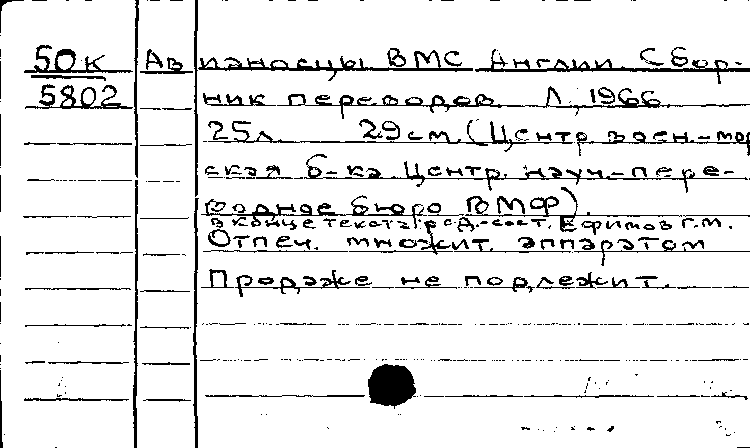 50к Авианосцы ВМС Англии. Сбор-
5802 ник переводов. Л, 1966.
25л. 29см. (Центр. воен-мор
ская б-ка. Центр. науч-пере-
водное бюро ВМФ).
В конце текста: ред.-сост. Ефимов Г.М.
Отпеч. множит. аппаратом
Продаже не подлежит.